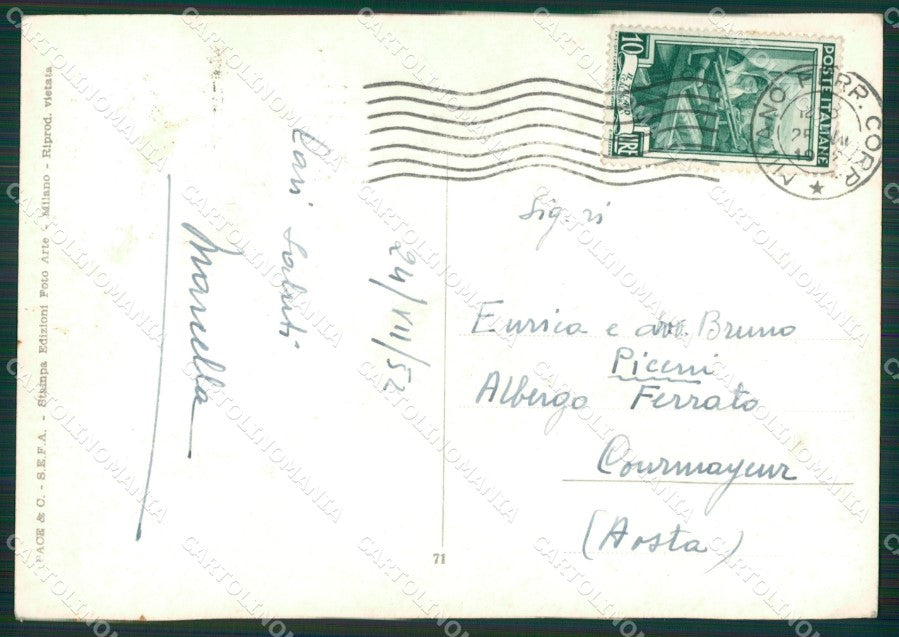 FACE & C. - S.E.F.A. - Stampa Edizioni Foto Arte - Milano - Riprod. vietata
24/VII/52
Cari Saluti
Marcella
71
10
LIRE
POSTE ITALIANE
MILANO FERR. CORR.
25
Sig.ri
Enrica e Bruno
Piceni
Albergo Ferrato
Courmayeur
(Aosta)
CARTOLINOMANIA